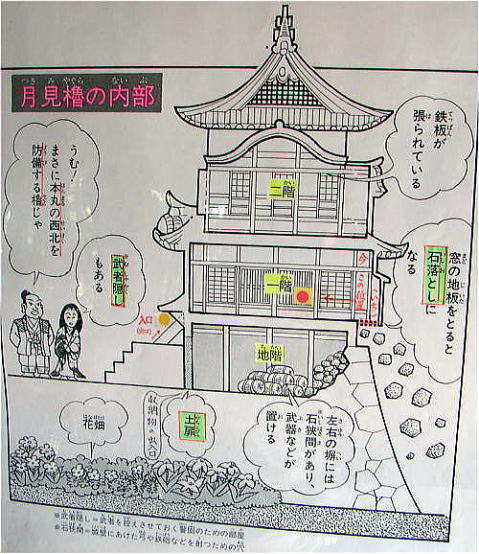 月見櫓の内部
鉄板が
張られている
うむ!
まさに本丸の西北を
防備する櫓じゃ
武者隠し
もある
窓の地板をとると
石落としに
なる
二階
一階
地階
今この位置
入口
収納物の出入口
土扉
花畑
左右の塀には
石狭間があり、
武器などが
置ける
※武者隠し=武者を控えさせておく警固のための部屋
※石狭間=城壁にあけた弓や鉄砲などを射つための